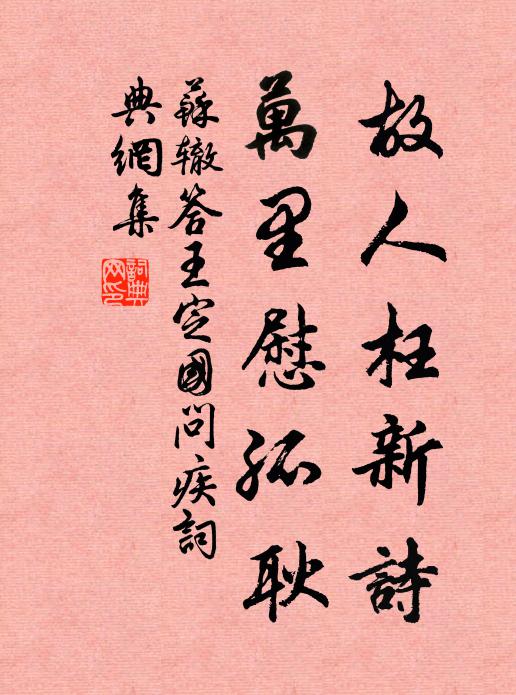 故人枉新詩
萬里慰孤耿
蘇辙答王定國問疾詞
典網集
詞典
网印